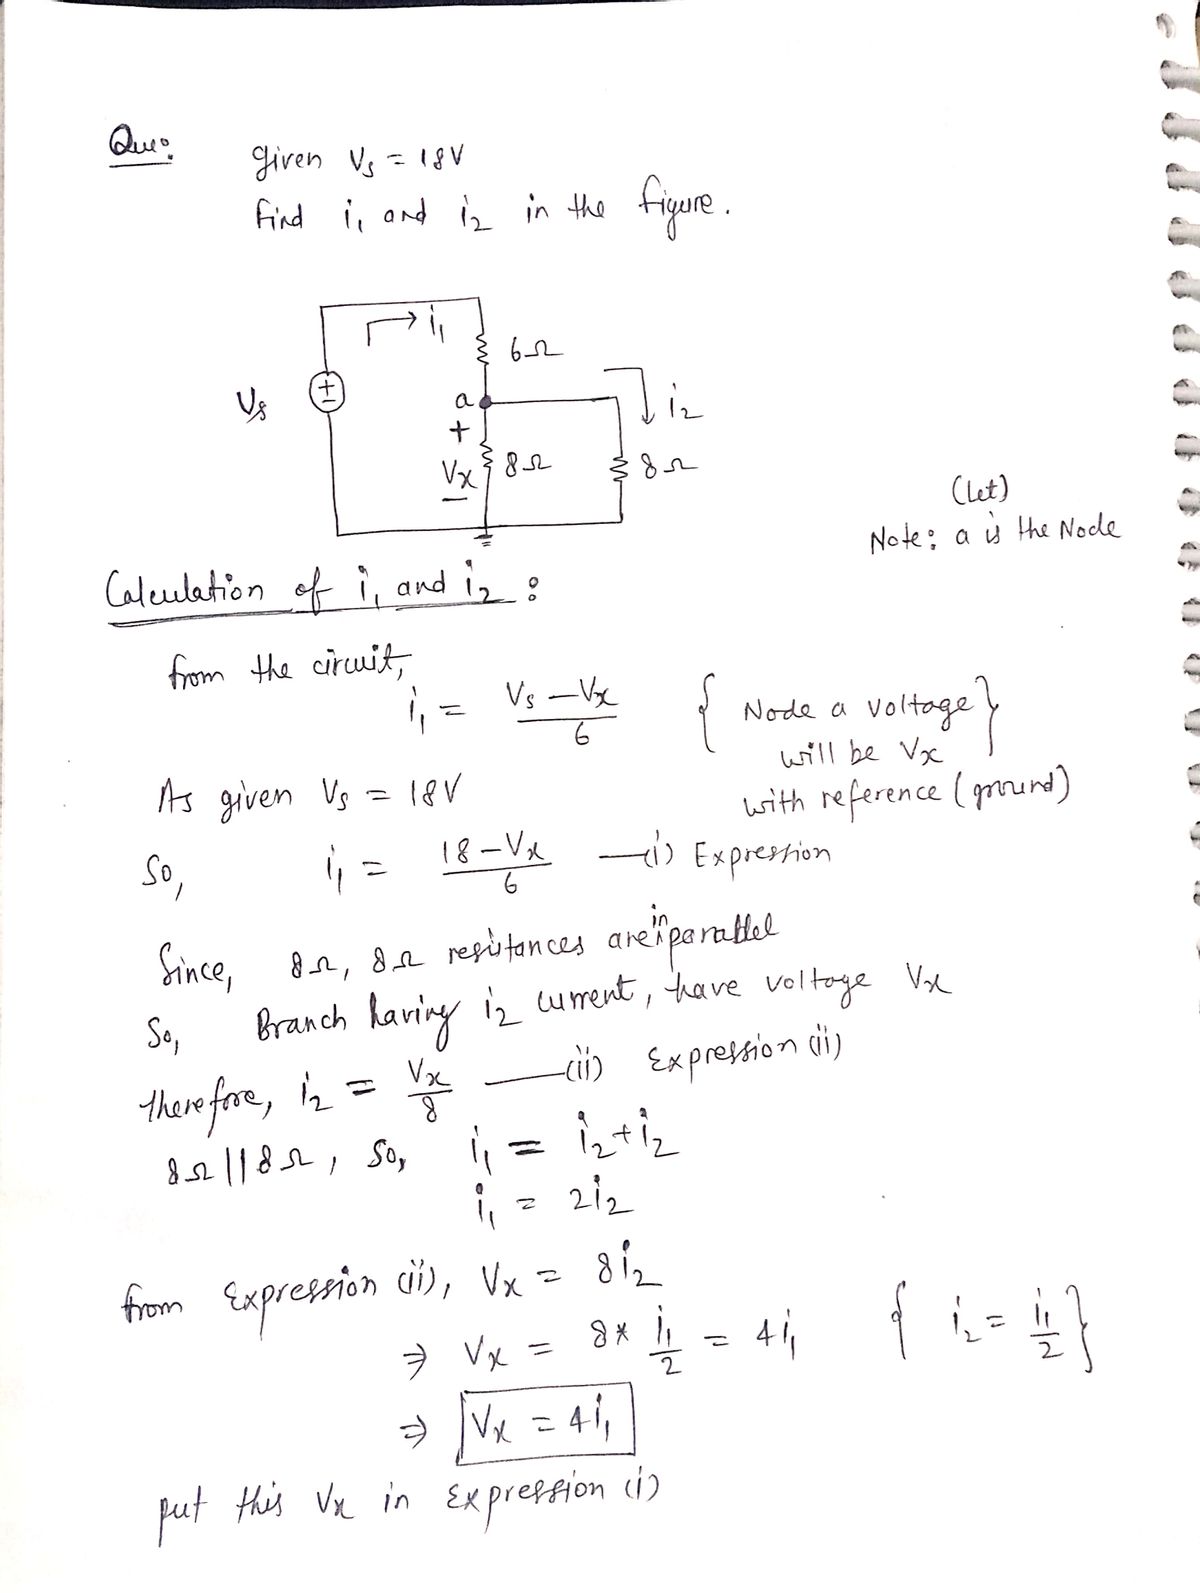 Que:
given Vs = 18V
find i₁ and i₂ in the figure.
i₁
6Ω
Vs
+
-
a
i₂
+
Vx
-
8Ω
8Ω
(Let)
Note: a is the Node
Calculation of i₁ and i₂ :
from the circuit,
i₁ = (Vs - Vx)/6 { Node a voltage will be Vx }
with reference (ground)
As given Vs = 18V
So, i₁ = (18 - Vx)/6 —(i) Expression
Since, 8Ω, 8Ω resistances are in parallel
So, Branch having i₂ current, have voltage Vx
therefore, i₂ = Vx/8 —(ii) Expression (ii)
8Ω || 8Ω, So, i₁ = i₂ + i₂
i₁ = 2i₂
from Expression (ii), Vx = 8i₂
⇒ Vx = 8 * i₁/2 = 4i₁ { i₂ = i₁/2 }
⇒ Vx = 4i₁
put this Vx in Expression (i)